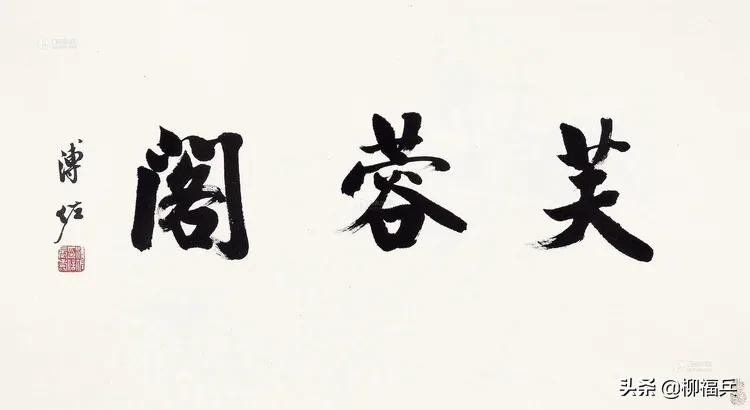 芙蓉阁
溥佐
头条@柳福兵